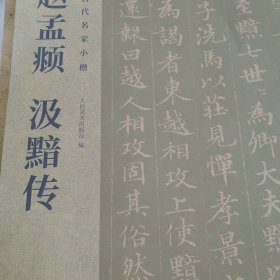 历代名家小楷
赵孟𫖯 汲黯传
人民美术出版社 编
黯七世
子洗馬以莊見憚孝景
謁者東越相攻上使黯
報曰越人相攻固其俗然